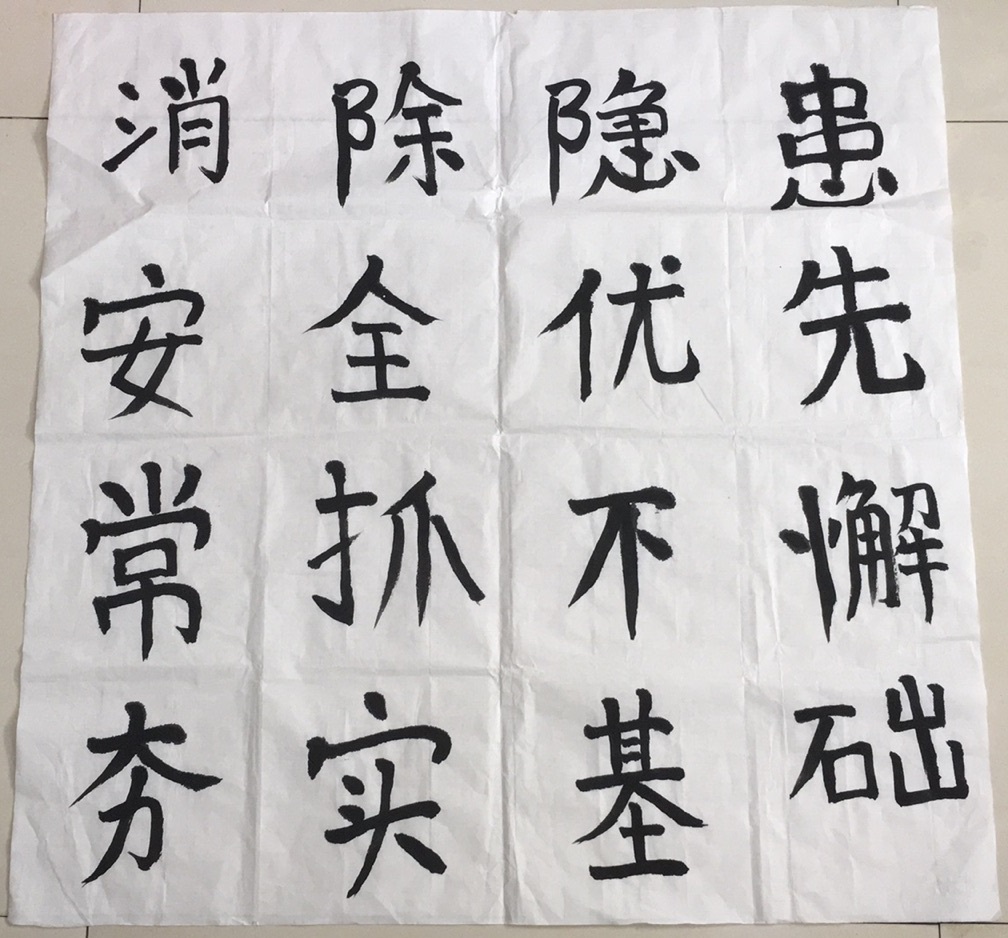 消除隐患
安全优先
常抓不懈
夯实基础